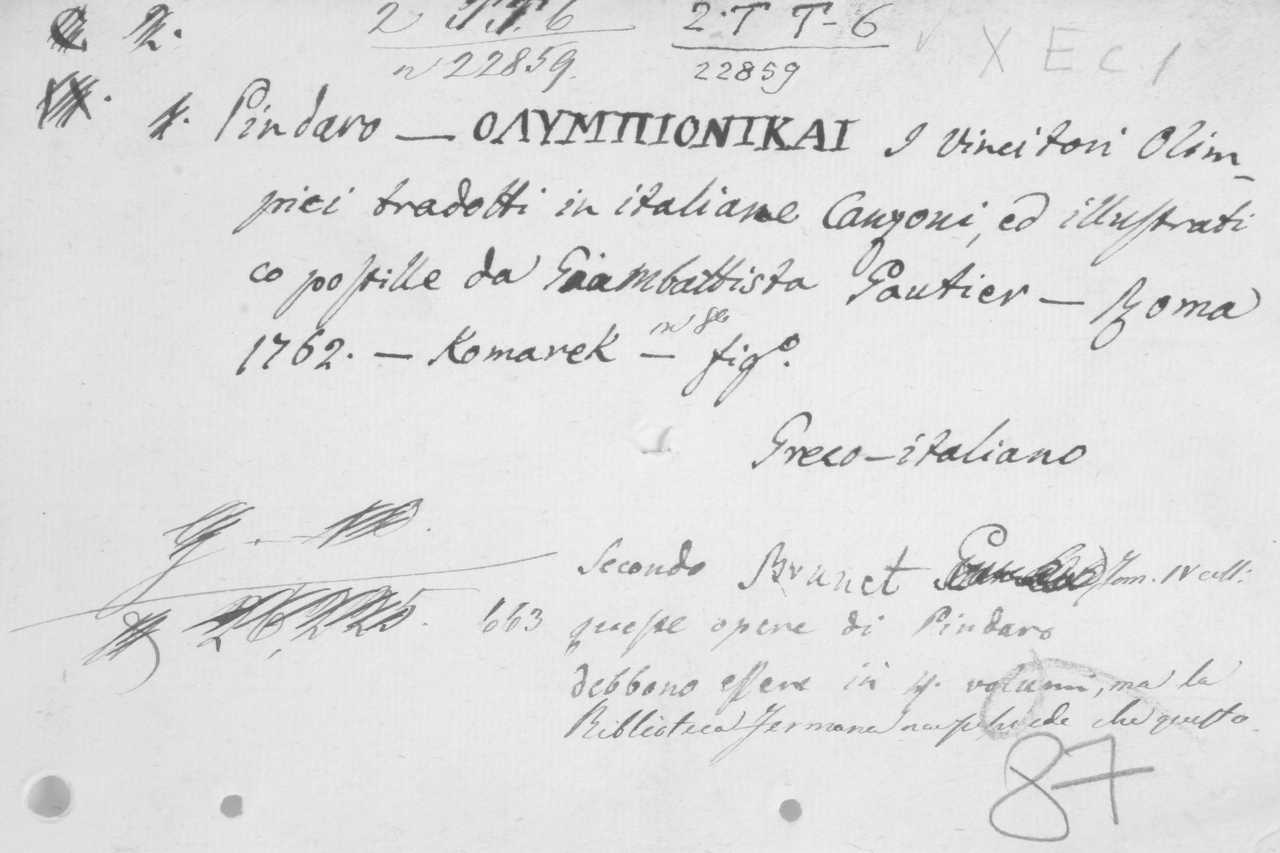 2 TT 6 2·T T-6
nº 22859. 22859
X E C 1
4. Pindaro — ΟΛΥΜΠΙΟΝΙΚΑΙ I Vincitori Olim_
pici tradotti in italiane Canzoni, ed illustrati
co postille da Giambattista Gautier — Roma
1762. — Komarek — in 8º figº.
Greco-italiano
Secondo Brunet Tom. IV coll:
663 queste opere di Pindaro
debbono essere in 4. volumi, ma la
Biblioteca possiede che questo.
87